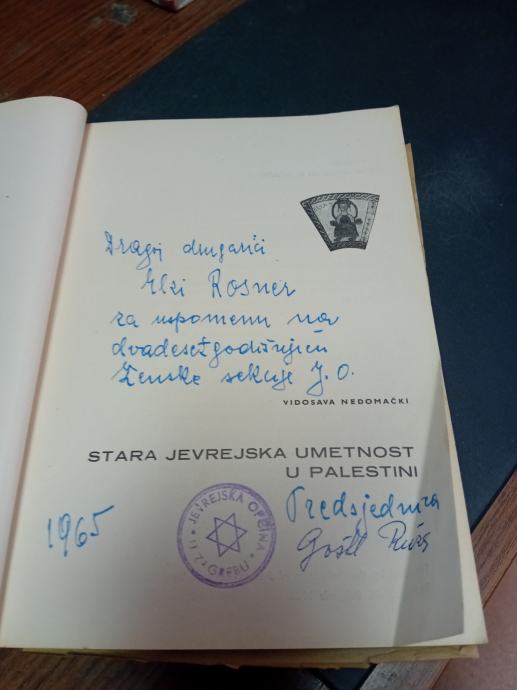 Dragoj drugarici
Elzi Rosner
za uspomenu na
dvadesetgodišnjicu
Ženske sekcije J. O.
VIDOSAVA NEDOMAČKI
STARA JEVREJSKA UMETNOST
U PALESTINI
1965
JEVREJSKA OPĆINA
U ZAGREBU
Predsjednica
Ruža